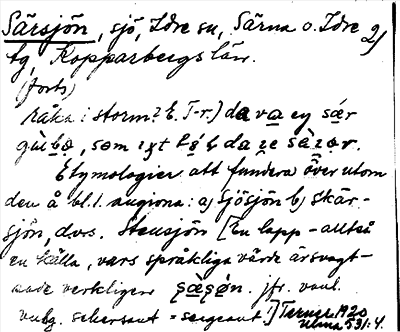 Särsjön, sjö, Idre sn, Särna o. Idre 2)
tg Kopparbergs län.
(forts)
råka i storm? E. T-r.) da va ey sær
gùbə, som
Etymologier att fundera över utom
den å bl. 1. angivna: a) Sjösjön b) Skär-
sjön, dvs. Stensjön [En lapp - alltså
en källa, vars språkliga värde årsvagt-
verkligen jfr. vanl.
vulg. schersant = sergeant.] Terner 1920
Ulma 531:4.